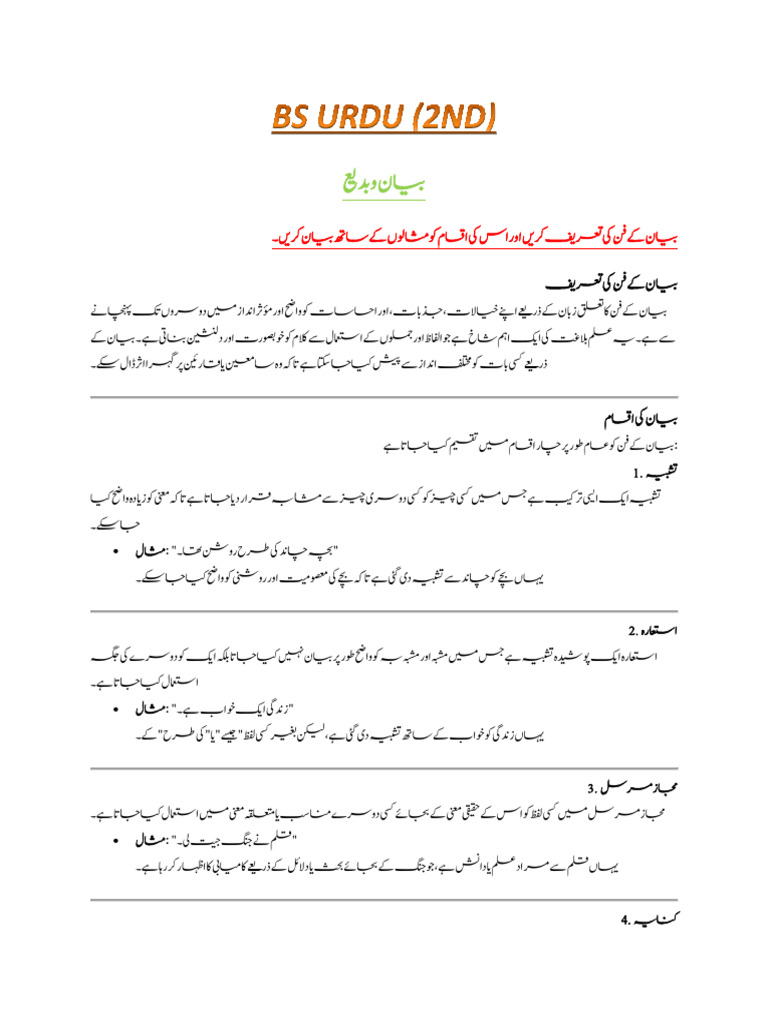 BS URDU (2ND)
بیان و بدیع
بیان کے فن کی تعریف کریں اور اس کی اقسام کو مثالوں کے ساتھ بیان کریں۔
بیان کے فن کی تعریف
بیان کے فن کا تعلق زبان کے ذریعے اپنے خیالات، جذبات، اور احساسات کو واضح اور مؤثر انداز میں دوسروں تک پہنچانے
سے ہے۔ یہ علم بلاغت کی ایک اہم شاخ ہے جو الفاظ اور جملوں کے استعمال سے کلام کو خوبصورت اور دلنشین بناتی ہے۔ بیان کے
ذریعے کسی بات کو مختلف انداز سے پیش کیا جا سکتا ہے تاکہ وہ سامعین یا قارئین پر گہرا اثر ڈال سکے۔
بیان کی اقسام
بیان کے فن کو عام طور پر چار اقسام میں تقسیم کیا جاتا ہے:
1. تشبیہ
تشبیہ ایک ایسی ترکیب ہے جس میں کسی چیز کو کسی دوسری چیز سے مشابہ قرار دیا جاتا ہے تاکہ معنی کو زیادہ واضح کیا
جا سکے۔
• مثال: "بچہ چاند کی طرح روشن تھا۔"
یہاں بچے کو چاند سے تشبیہ دی گئی ہے تاکہ بچے کی معصومیت اور روشنی کو واضح کیا جا سکے۔
2. استعارہ
استعارہ ایک پوشیدہ تشبیہ ہے جس میں مشبہ اور مشبہ بہ کو واضح طور پر بیان نہیں کیا جاتا بلکہ ایک کو دوسرے کی جگہ
استعمال کیا جاتا ہے۔
• مثال: "زندگی ایک خواب ہے۔"
یہاں زندگی کو خواب کے ساتھ تشبیہ دی گئی ہے، لیکن بغیر کسی لفظ "جیسے" یا "کی طرح" کے۔
3. مجاز مرسل
مجاز مرسل میں کسی لفظ کو اس کے حقیقی معنی کے بجائے کسی دوسرے مناسب یا متعلقہ معنی میں استعمال کیا جاتا ہے۔
• مثال: "قلم نے جنگ جیت لی۔"
یہاں قلم سے مراد علم یا دانش ہے، جو جنگ کے بجائے بحث یا دلائل کے ذریعے کامیابی کا اظہار کر رہا ہے۔
4. کنایہ